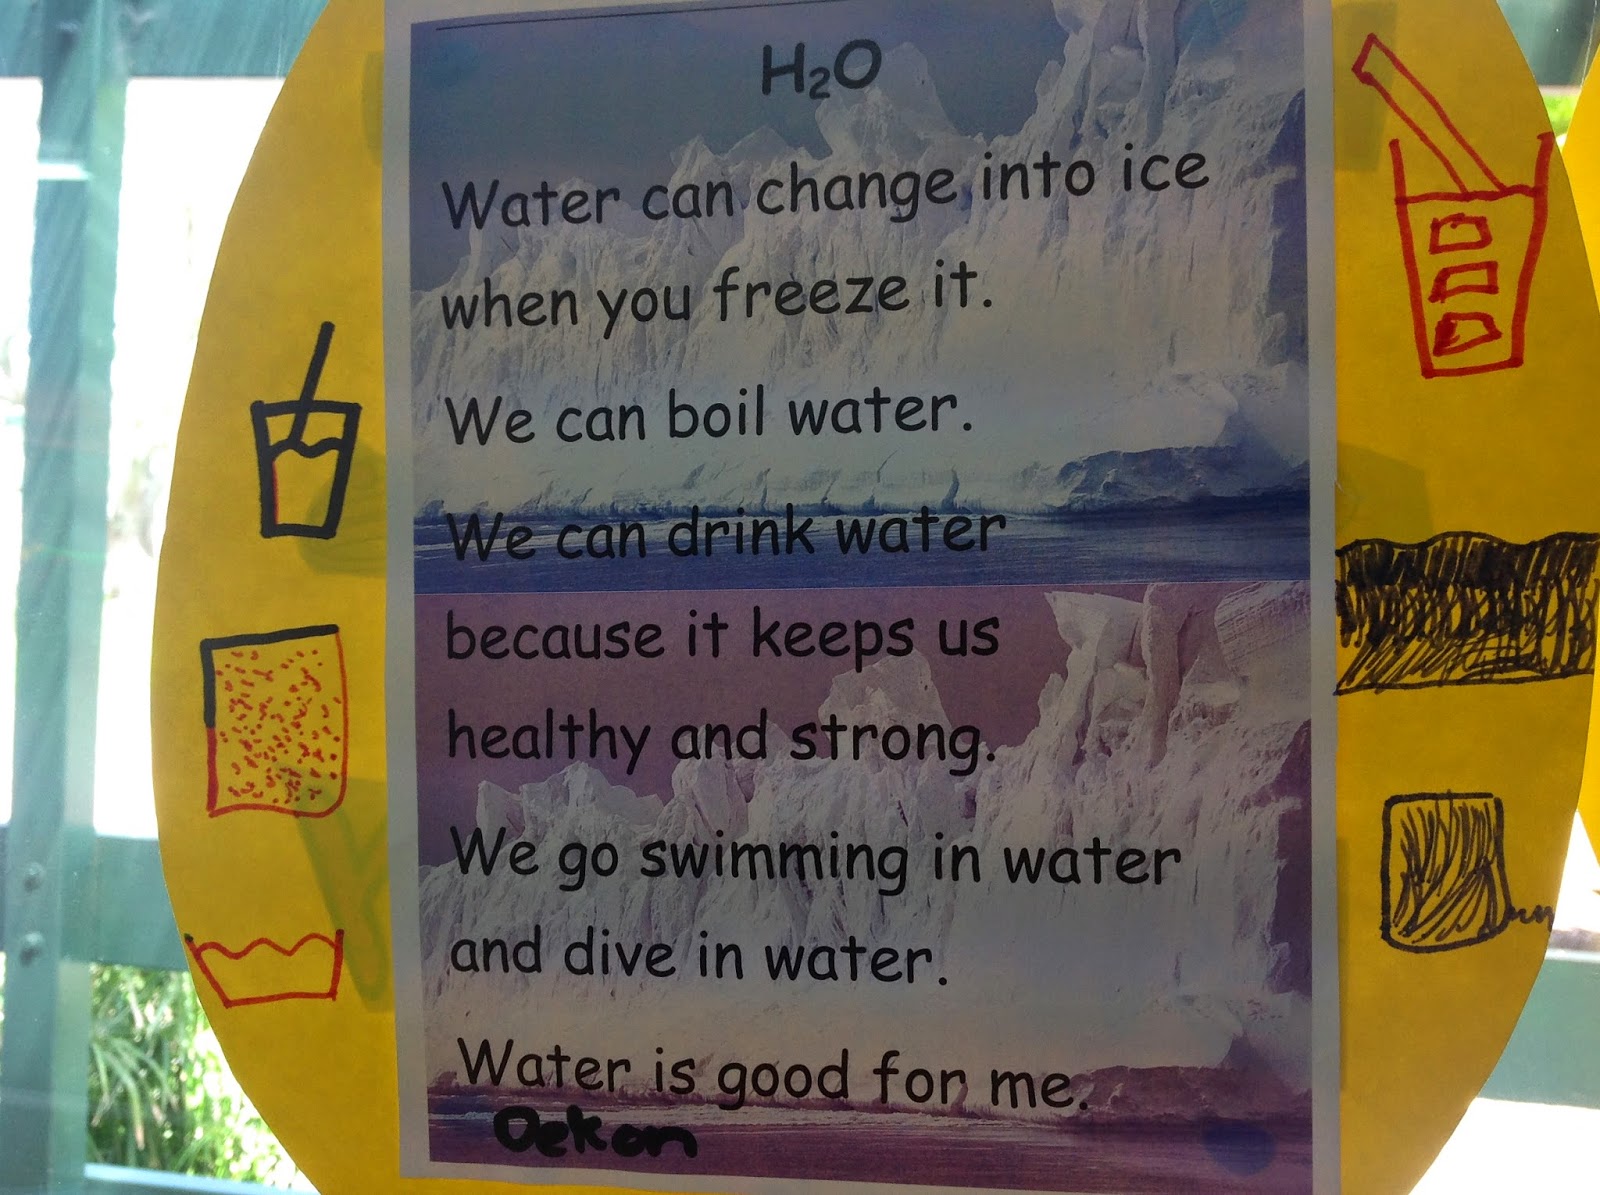 H₂O
Water can change into ice
when you freeze it.
We can boil water.
We can drink water
because it keeps us
healthy and strong.
We go swimming in water
and dive in water.
Water is good for me.
Oekan